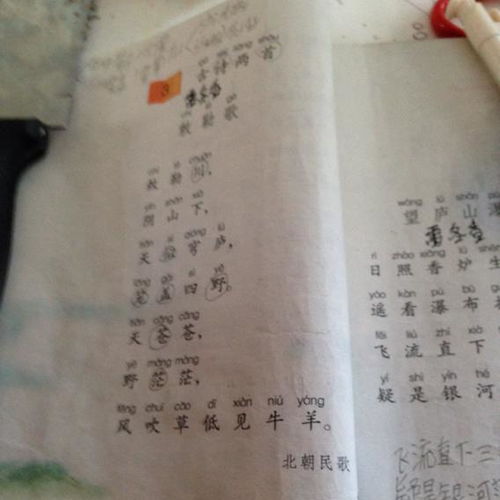 gǔ shī liǎng shǒu
古诗两首
3
chì lè gē
敕勒歌
chì lè chuān
敕勒川,
yīn shān xià
阴山下,
天似穹庐,
笼盖四野。
tiān cāng cāng
天苍苍,
yě máng máng
野茫茫,
fēng chuī cǎo dī xiàn niú yáng
风吹草低见牛羊。
北朝民歌
wàng lú shān
望庐山
rì zhào xiāng lú shēng
日照香炉生
yáo kàn pù bù
遥看瀑布
fēi liú zhí xià
飞流直下
yí shì yín hé
疑是银河
飞流直下三